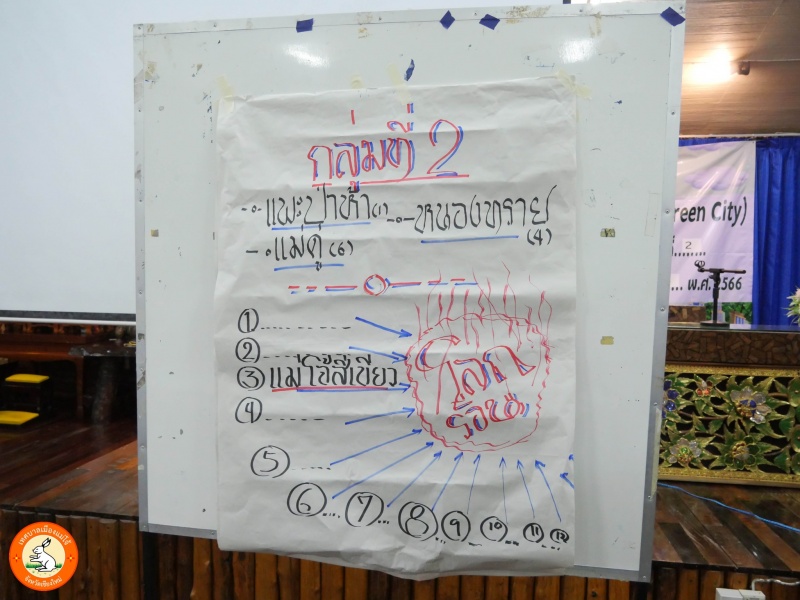 กลุ่มที่ 2
-·-แพะป่าห้า(1) -·-หนองทราย(4)
-·แม่ดู(6)
① ........
② ........
③ แม่โจ้สีเขียว
④ ........
⑤ ....
⑥... ⑦... ⑧.. ⑨.. ⑩... ⑪... ⑫
โลก
ร้อน
reen City)
2
พ.ศ. 2566
เทศบาลเมืองแม่โจ้
จังหวัดเชียงใหม่